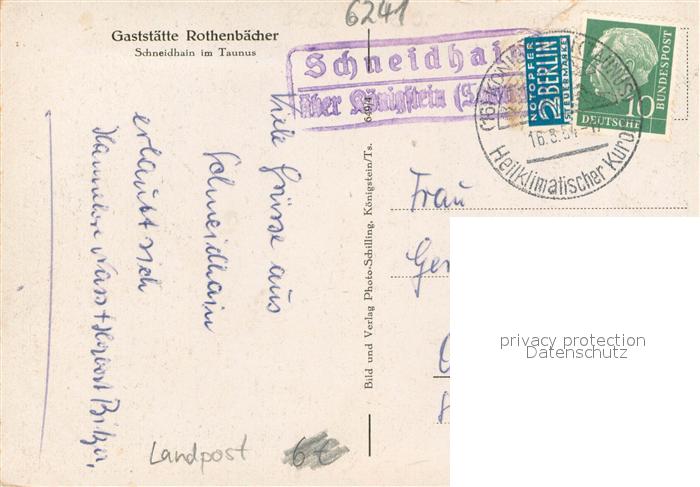 6241
Gaststätte Rothenbächer
Schneidhain im Taunus
Schneidhain
über Königstein
(16) KÖNIGSTEIN (TAUNUS)
16.8.54
Heilklimatischer Kurort
NOTOPFER
2 BERLIN
STEUERMARKE
10
DEUTSCHE
BUNDESPOST
Viele Grüsse aus
Schneidhain
erlaubt sich
Bild und Verlag Photo-Schilling, Königstein/Ts. 649/4
Frau
privacy protection
Datenschutz
Landpost
6€